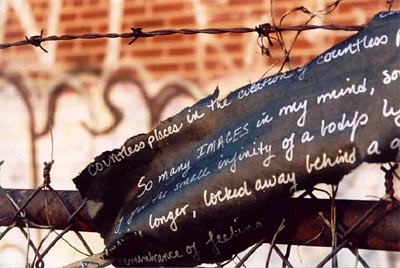 countless places in the creation of countless
So many IMAGES in my mind, so
small infinity of a body's
longer, locked away behind a
remembrance of feeling